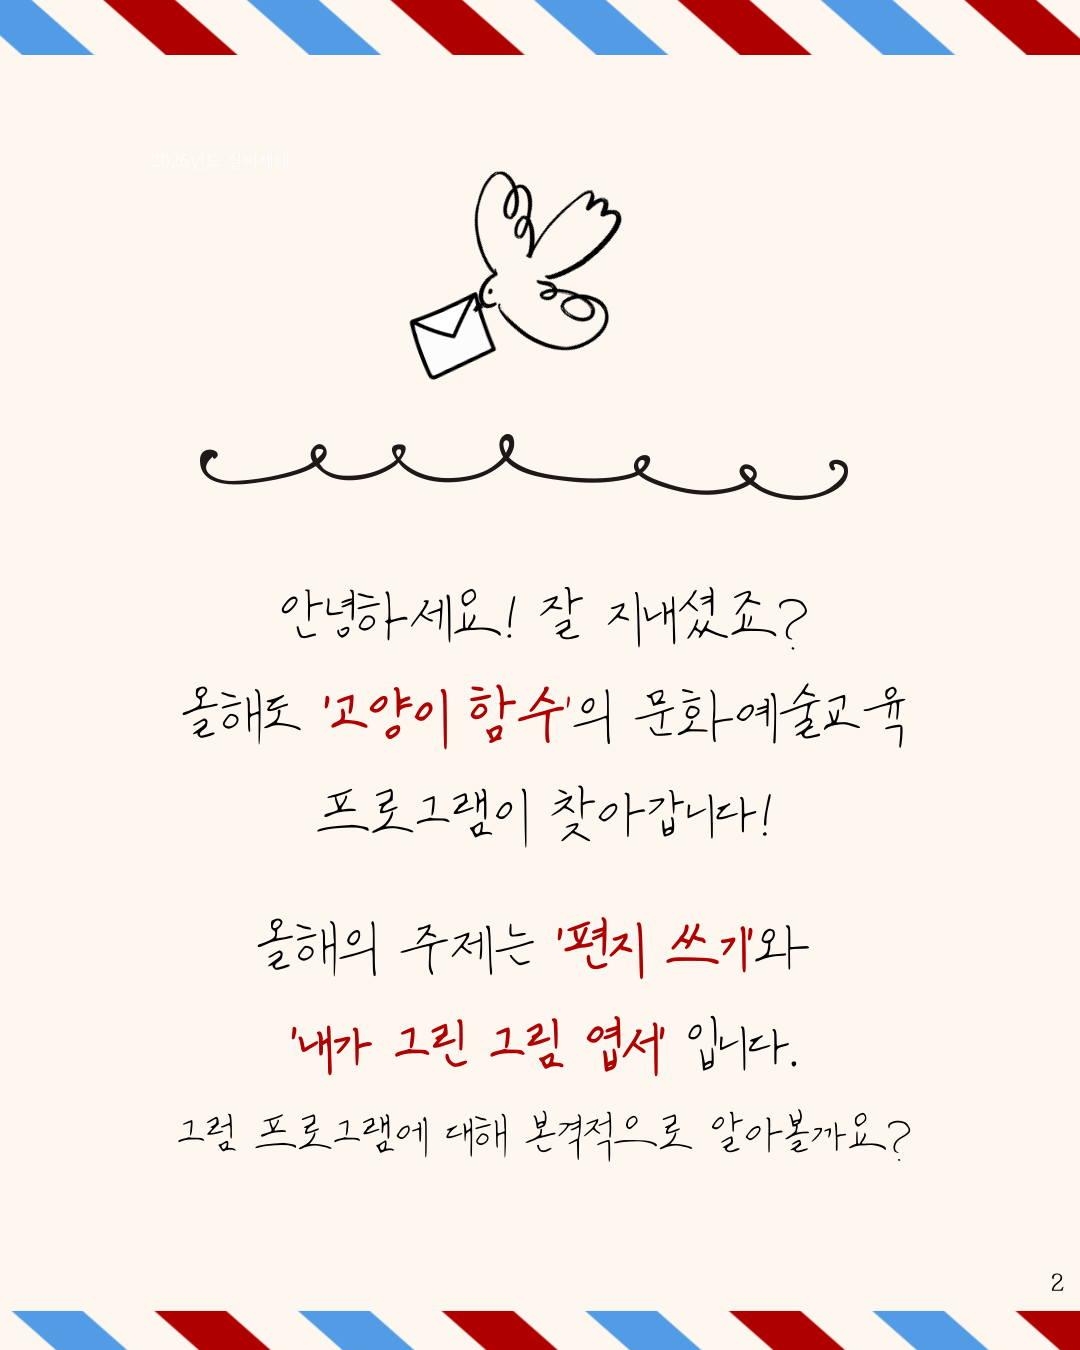 2026년도 실버세대
안녕하세요! 잘 지내셨죠?
올해도 '고양이 함수'의 문화예술교육
프로그램이 찾아갑니다!
올해의 주제는 '편지 쓰기'와
'내가 그린 그림 엽서' 입니다.
그럼 프로그램에 대해 본격적으로 알아볼까요?
2